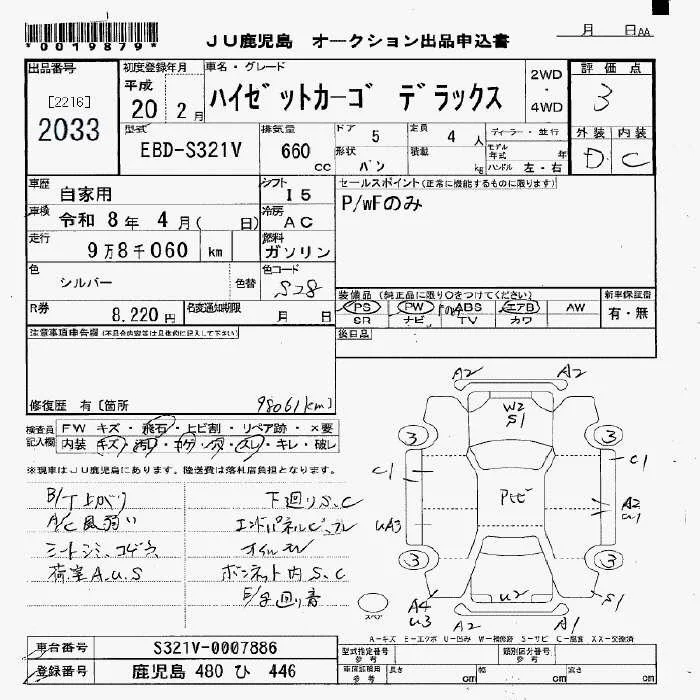 *0019879*
JU鹿児島 オークション出品申込書
月 日AA
出品番号
[2216]
2033
初度登録年月
平成
20 2月
車名・グレード
ハイゼットカーゴ デラックス
2WD
・
4WD
評価点
3
型式
EBD-S321V
排気量
660
cc
ドア 5
定員 4人
形状 バン
積載 kg
ディーラー・並行
モデル年式 年
ハンドル 左・右
外装 内装
D C
車歴 自家用
シフト I5
車検 令和 8年 4月( 日)
冷房 AC
走行 9万8千060 km
燃料 ガソリン
セールスポイント(正常に機能するものに限ります)
P/WFのみ
色 シルバー
色替
色コード
S28
R券 8.220円
名変通知期限 月 日
装備品 (純正品に限り〇をつけてください)
PS PW ABS エアB AW
SR ナビ TV カワ
新車保証書
有・無
後日品
注意事項申告欄(不具合内容等は具体的に記入して下さい)
修復歴 有〔箇所
98061km]
検査員記入欄
FW キズ・飛石・上ヒ割・リペア跡・×要
内装 キズ・汚れ・コゲ・穴・スレ・キレ・破レ
※現車はJU鹿児島にあります。陸送費は落札店負担となります。
B/T上がり
A/C風弱い
シートシミ、コゲ穴
荷室A.U.S
下廻りS.C
エンドパネルピ、フレ
オイルモレ
ボンネット内S.C
E/g廻り音
A2 A2
W2
S1
3 3
C1 C1
Pセビ
A2
U1
UA3
3 3
U2
A4
U3
S1
A2 A1
スペア
A-キズ E-エクボ U-凹み W-補修跡 S-サビ C-腐食 XX-交換済
車台番号 S321V-0007886
登録番号 鹿児島 480 ひ 446
型式指定番号 参考
類別区分番号 参考
車庫証明用 参考
長さ cm
幅 cm
高さ cm